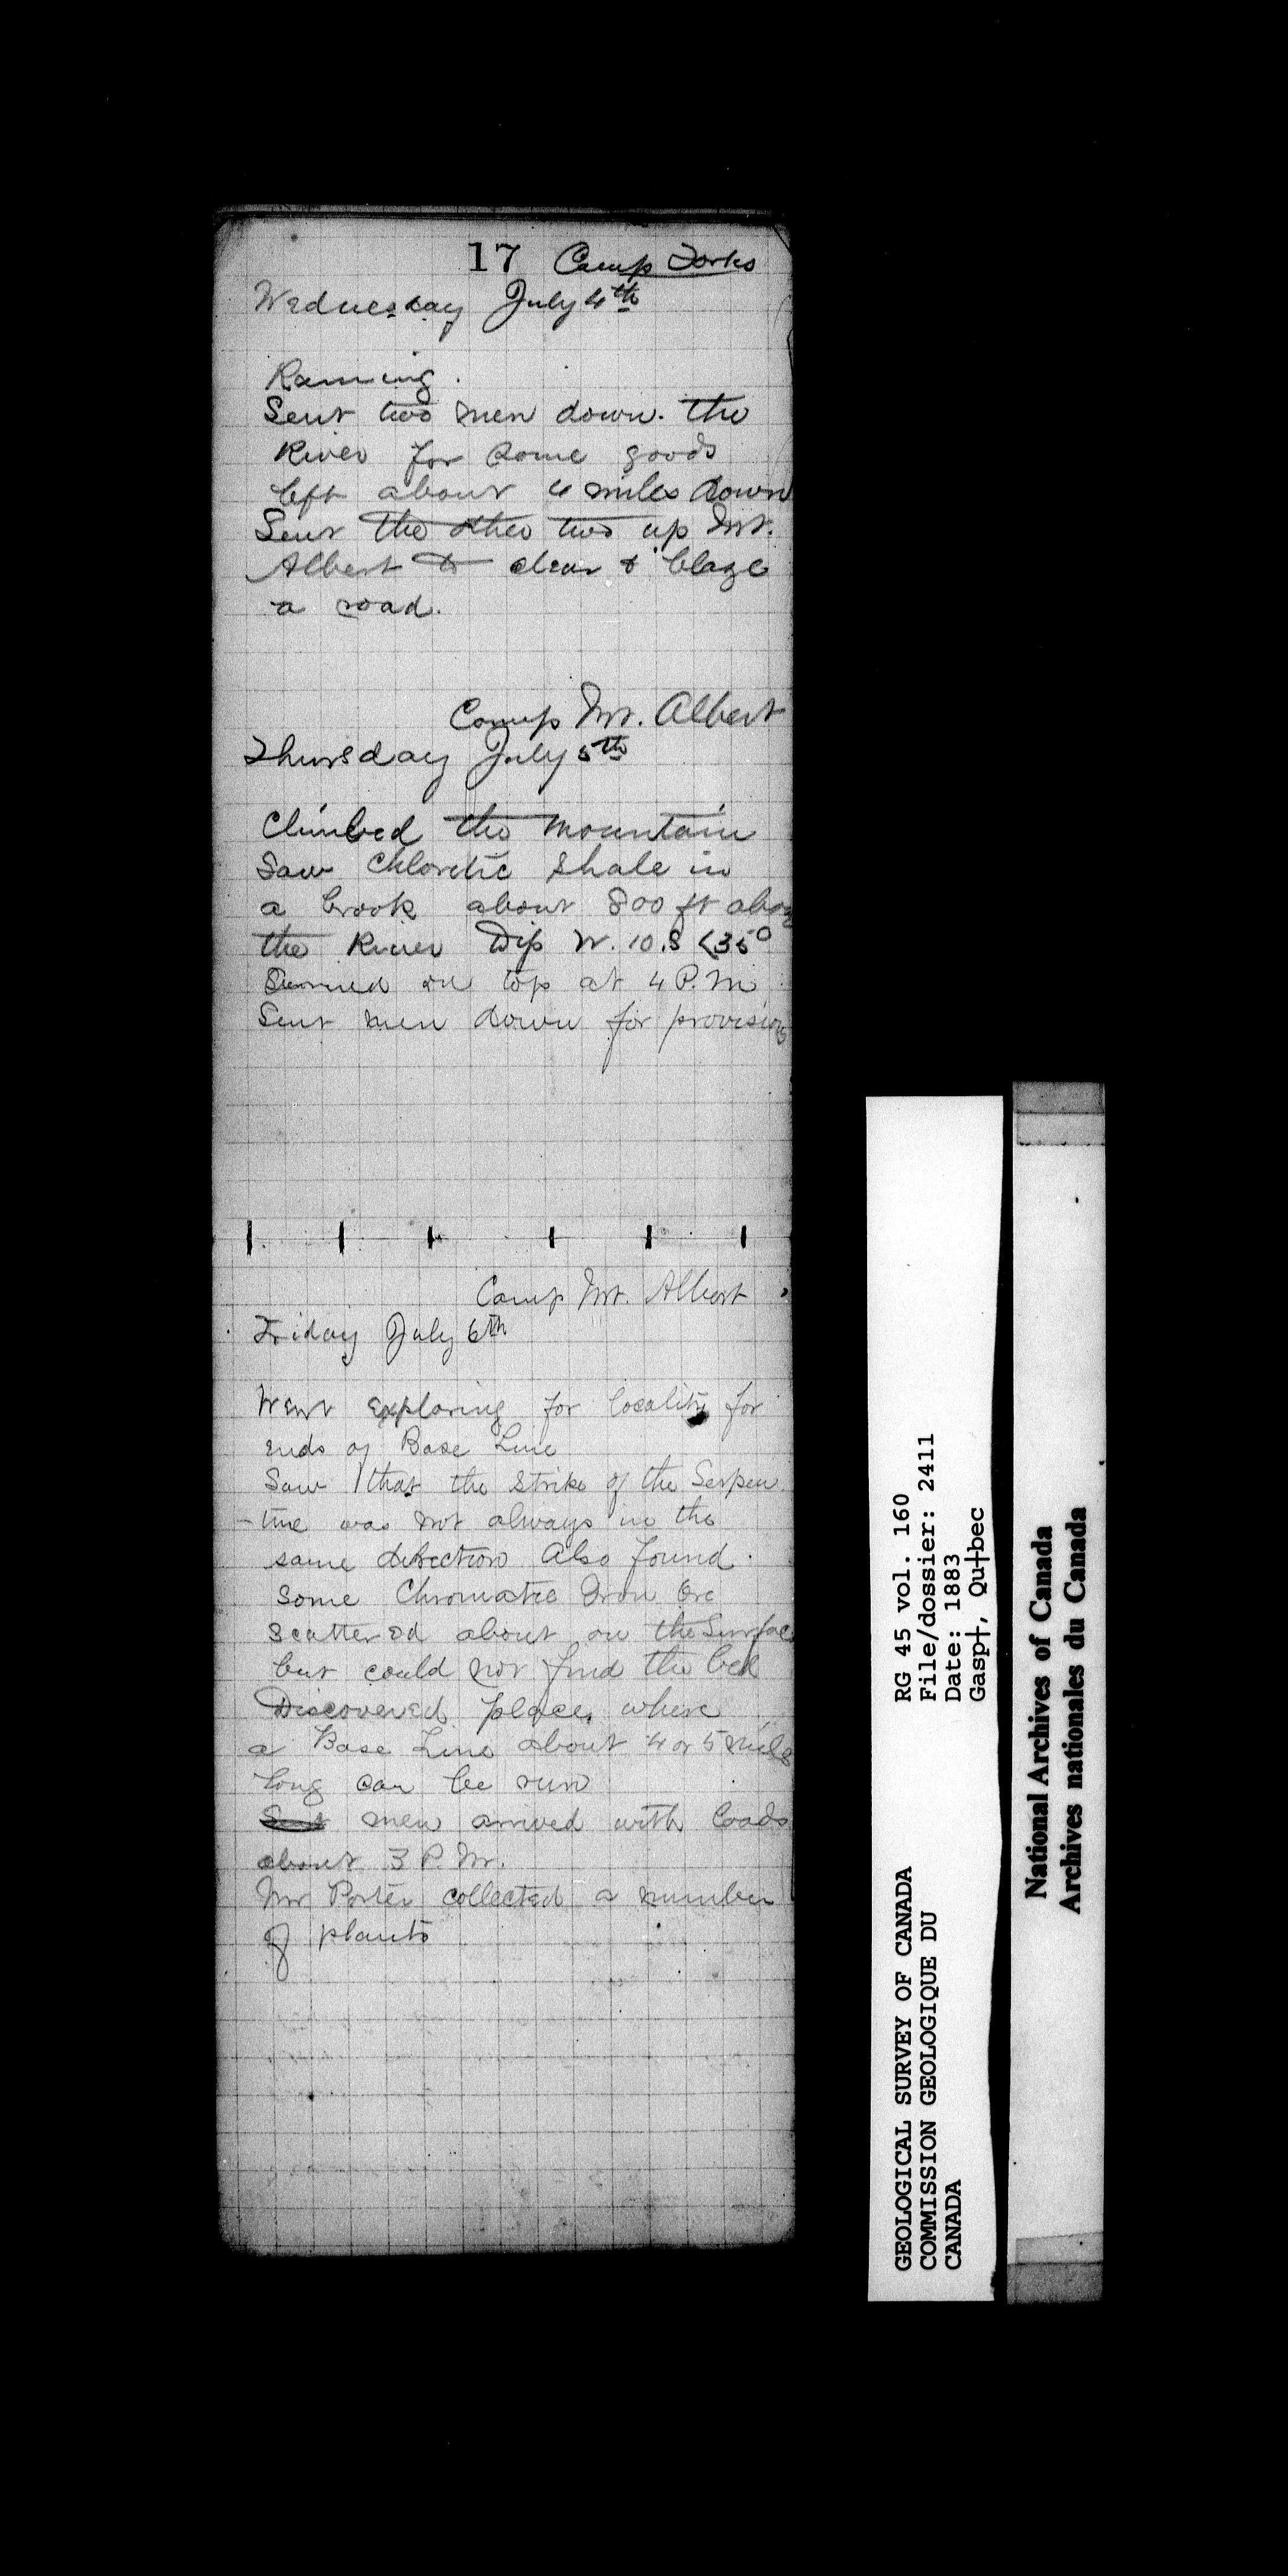 17 Camp Forks
Wednesday July 4th
Raining.
Sent two men down the
River for some goods
left about 4 miles down
Sent the other two up Mt.
Albert to clear & blaze
a road.
Camp Mt. Albert
Thursday July 5th
Climbed the mountain
Saw Chloritic Shale in
a brook about 800 ft above
the River Dip W. 10.S <35°
on top at 4 P.M.
Sent men down for provisions
Camp Mt. Albert
Friday July 6th
Went exploring for locality for
ends of Base Line
Saw that the Strike of the Serpen
-tine was not always in the
same direction Also found
some Chromatic Iron Ore
scattered about on the Surface
but could not find the bed
Discovered place, where
a Base Line about 4 or 5 miles
long can be run
Sent men arrived with loads
about 3 P.M.
Mr Porter collected a number
of plants
GEOLOGICAL SURVEY OF CANADA
COMMISSION GEOLOGIQUE DU
CANADA
RG 45 vol. 160
File/dossier: 2411
Date: 1883
Gasp†, Qu†bec
National Archives of Canada
Archives nationales du Canada